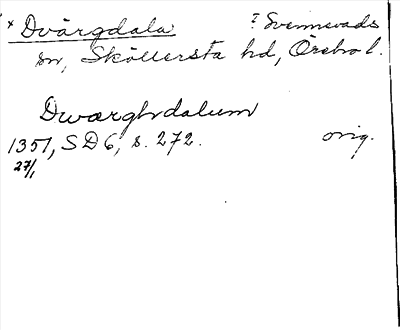 x Dvärgdala ? Svennevads
sn, Sköllersta hd, Örebro l.
Dwærghdalum
1351, SD 6, s. 272. orig.
27/1